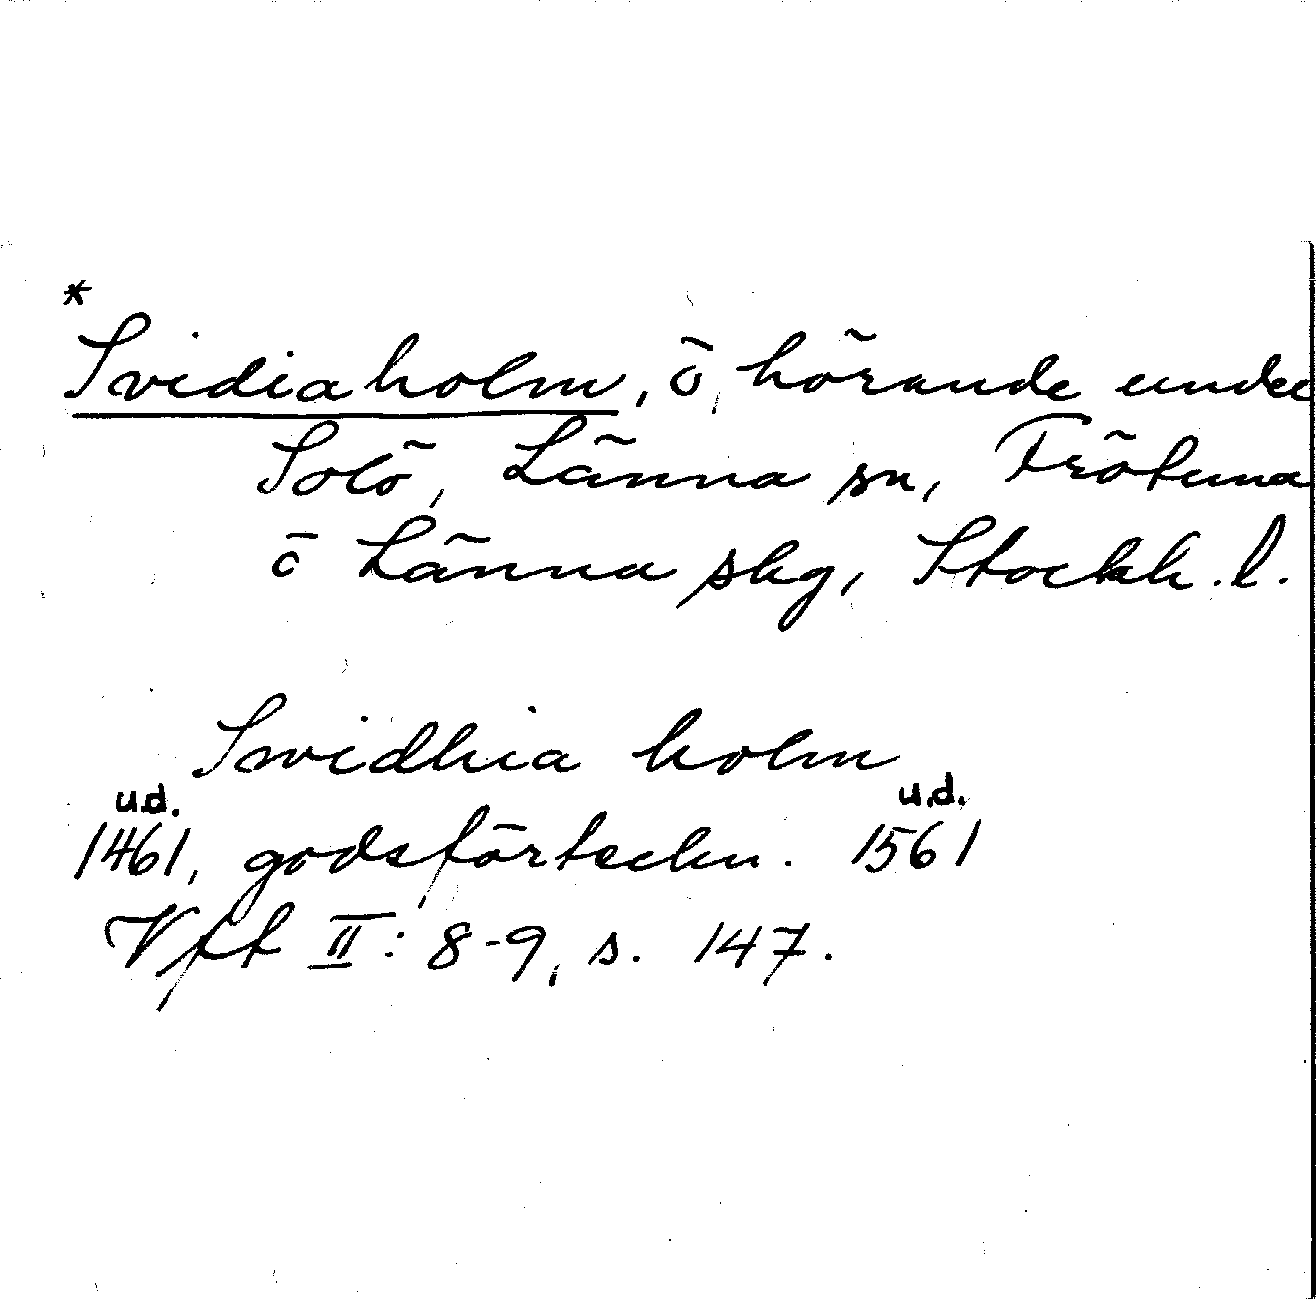 *
Svidiaholm, ö hörande under
Solö, Länna sn, Frötuna
o Länna skg, Stockh. l.
Swidhia holm
u.d. u.d.
1461, godsförteckn. 1561
Vft II: 8-9, s. 147.